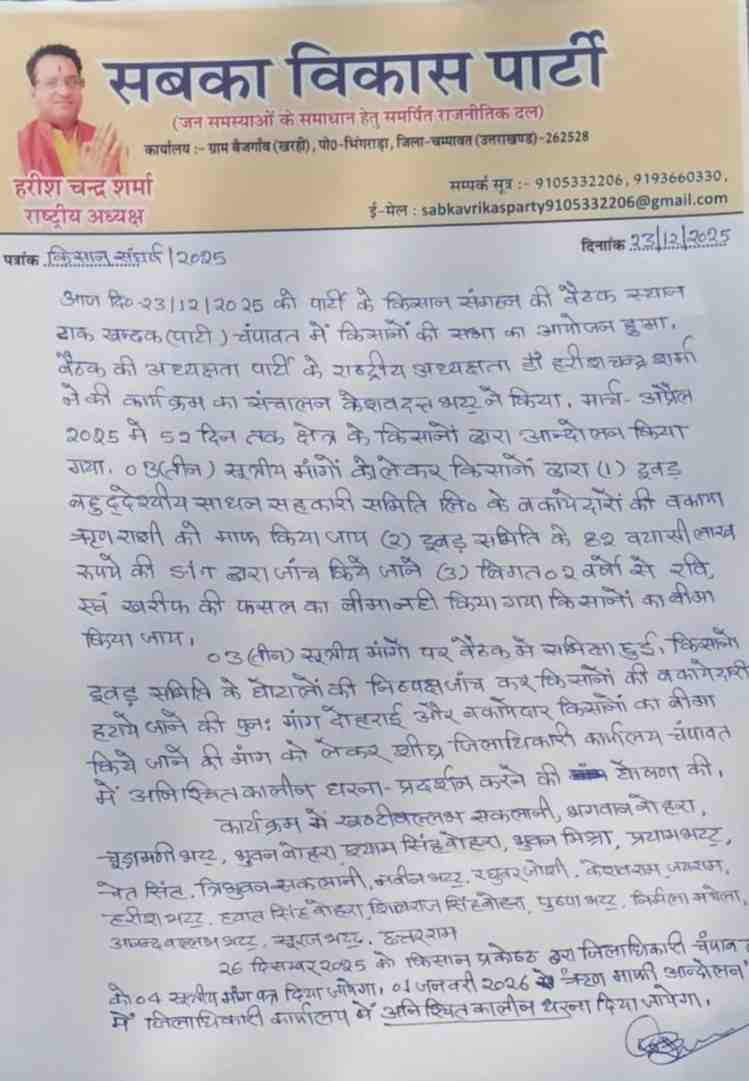 सबका विकास पार्टी
(जन समस्याओं के समाधान हेतु समर्पित राजनीतिक दल)
कार्यालय :- ग्राम बैजगाँव (खरही), पो०-भिंगराड़ा, जिला-चम्पावत (उत्तराखण्ड)-262528
हरीश चन्द्र शर्मा
राष्ट्रीय अध्यक्ष
सम्पर्क सूत्र :- 9105332206, 9193660330,
ई-मेल : sabkavrikasparty9105332206@gmail.com
पत्रांक किसान संघर्ष/2025
दिनांक 23/12/2025
आज दि० 23/12/2025 को पार्टी के किसान संगठन की बैठक स्थान
ढाक खन्दक (पाटी) चंपावत में किसानों की सभा का आयोजन हुआ,
बैठक की अध्यक्षता पार्टी के राष्ट्रीय अध्यक्षता श्री हरीश चन्द्र शर्मा
ने की कार्यक्रम का संचालन केशवदत्त भट्ट ने किया, मार्च-अप्रैल
2025 मे 52 दिन तक क्षेत्र के किसानों द्वारा आन्दोलन किया
गया, 03(तीन) सूत्रीय मांगों को लेकर किसानों द्वारा (1) दूवड़
बहुद्देश्यीय साधन सहकारी समिति लि० के वकायेदारों की वकाया
ऋण राशी को माफ किया जाय (2) दूवड़ समिति के 82 वयासी लाख
रुपये की SIT द्वारा जाँच किये जाने (3) विगत 02 वर्षो से रवि,
एवं खरीफ की फसल का बीमा नही किया गया किसानों का बीमा
किया जाय,
03(तीन) सूत्रीय मांगों पर बैठक मे समिक्षा हुई, किसानो
दूवड़ समिति के घोटालों की निष्पक्ष जाँच कर किसानों की वकायेदारी
हटाये जाने की पुनः मांग दोहराई और वकायेदार किसानों का बीमा
किये जाने की मांग को लेकर शीघ्र जिलाधिकारी कार्यालय चंपावत
में अनिश्चित कालीन धरना-प्रदर्शन करने की घोषणा की,
कार्यक्रम में षष्टीवल्लभ सकलानी, भगवान वोहरा,
चूड़ामणी भट्ट, भुवन वोहरा, श्याम सिंह वोहरा, भुवन मिश्रा, प्रयाग भट्ट,
चेत सिंह, त्रिभुवन सकलानी, नवीन भट्ट, रघुवर जोशी, केशवराम, जयराम,
हरीश भट्ट, हयात सिंह वोहरा, शिवराज सिंह वोहरा, पुष्पा भट्ट, निर्मला
आनन्द वल्लभ भट्ट, सूरज भट्ट, उत्तर राम
26 दिसम्बर 2025 को किसान प्रकोष्ठ द्वारा जिलाधिकारी चंपावत
को 04 सूत्रीय मांग पत्र दिया जायेगा, 01 जनवरी 2026 से "ऋण माफी आन्दोलन"
में जिलाधिकारी कार्यालय में अनिश्चित कालीन धरना दिया जायेगा,